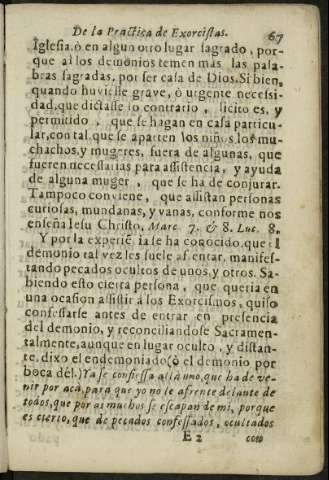 De la Practica de Exorcistas. 67
Iglesia. ò en algun otro lugar sagrado, por-
que allos demonios temen más las pala-
bras sagradas, por ser casa de Dios. Si bien,
quando huviesse grave, ò urgente necessi-
dad, que dictasse lo contrario, licito es, y
permitido, que se hagan en casa particu-
lar, con tal que se aparten los niños, los mu-
chachos, y mugeres, fuera de algunas, que
fueren necessarias para assistencia, y ayuda
de alguna muger, que se ha de conjurar.
Tampoco conviene, que assistan personas
curiosas, mundanas, y vanas, conforme nos
enseña Iesu Christo, Marc. 7. & 8. Luc. 8.
Y por la experiēcia se ha conocido, que el
demonio tal vez les suele afrentar, manifes-
tando pecados ocultos de unos, y otros. Sa-
biendo esto cierta persona, que queria en
una ocasion assistir à los Exorcismos, quiso
confessarse antes de entrar en presencia
del demonio, y reconciliandose Sacramen-
talmente, aunque en lugar oculto, y distan-
te, dixo el endemoniado (ò el demonio por
boca dèl.) Ya se confiessa allà uno, que ha de ve-
nir por acà, para que yo no le afrente delante de
todos, que por aì muchos se escapan de mi, porque
es cierto, que de pecados confessados, ocultados
E 2 como